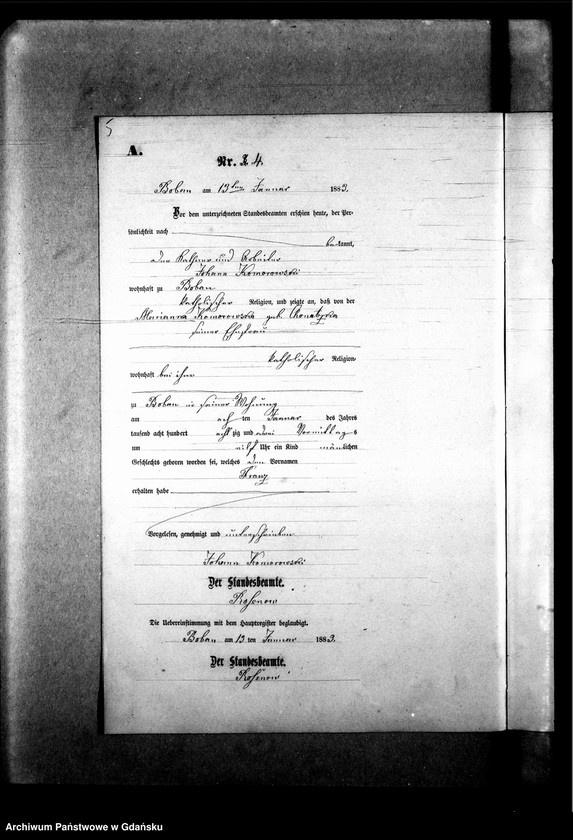 5
A.
Nr. 4.
Boban am 13ten Januar 1883.
Vor dem unterzeichneten Standesbeamten erschien heute, der Per-
sönlichkeit nach
bekannt,
der Käthner und Arbeiter
Johann Komorowski
wohnhaft zu Boban
katholischer Religion, und zeigte an, daß von der
Marianna Komorowska geb.
seiner Ehefrau
katholischer Religion
wohnhaft bei ihm
zu Boban in seiner Wohnung
am ten Januar des Jahres
tausend acht hundert acht zig und drei Vormittags
um Uhr ein Kind männlichen
Geschlechts geboren worden sei, welches den Vornamen
Franz
erhalten habe
Vorgelesen, genehmigt und unterschrieben
Johann Komorowski
Der Standesbeamte.
Die Uebereinstimmung mit dem Hauptregister beglaubigt.
Boban am 13 ten Januar 1883.
Der Standesbeamte.
Archiwum Państwowe w Gdańsku